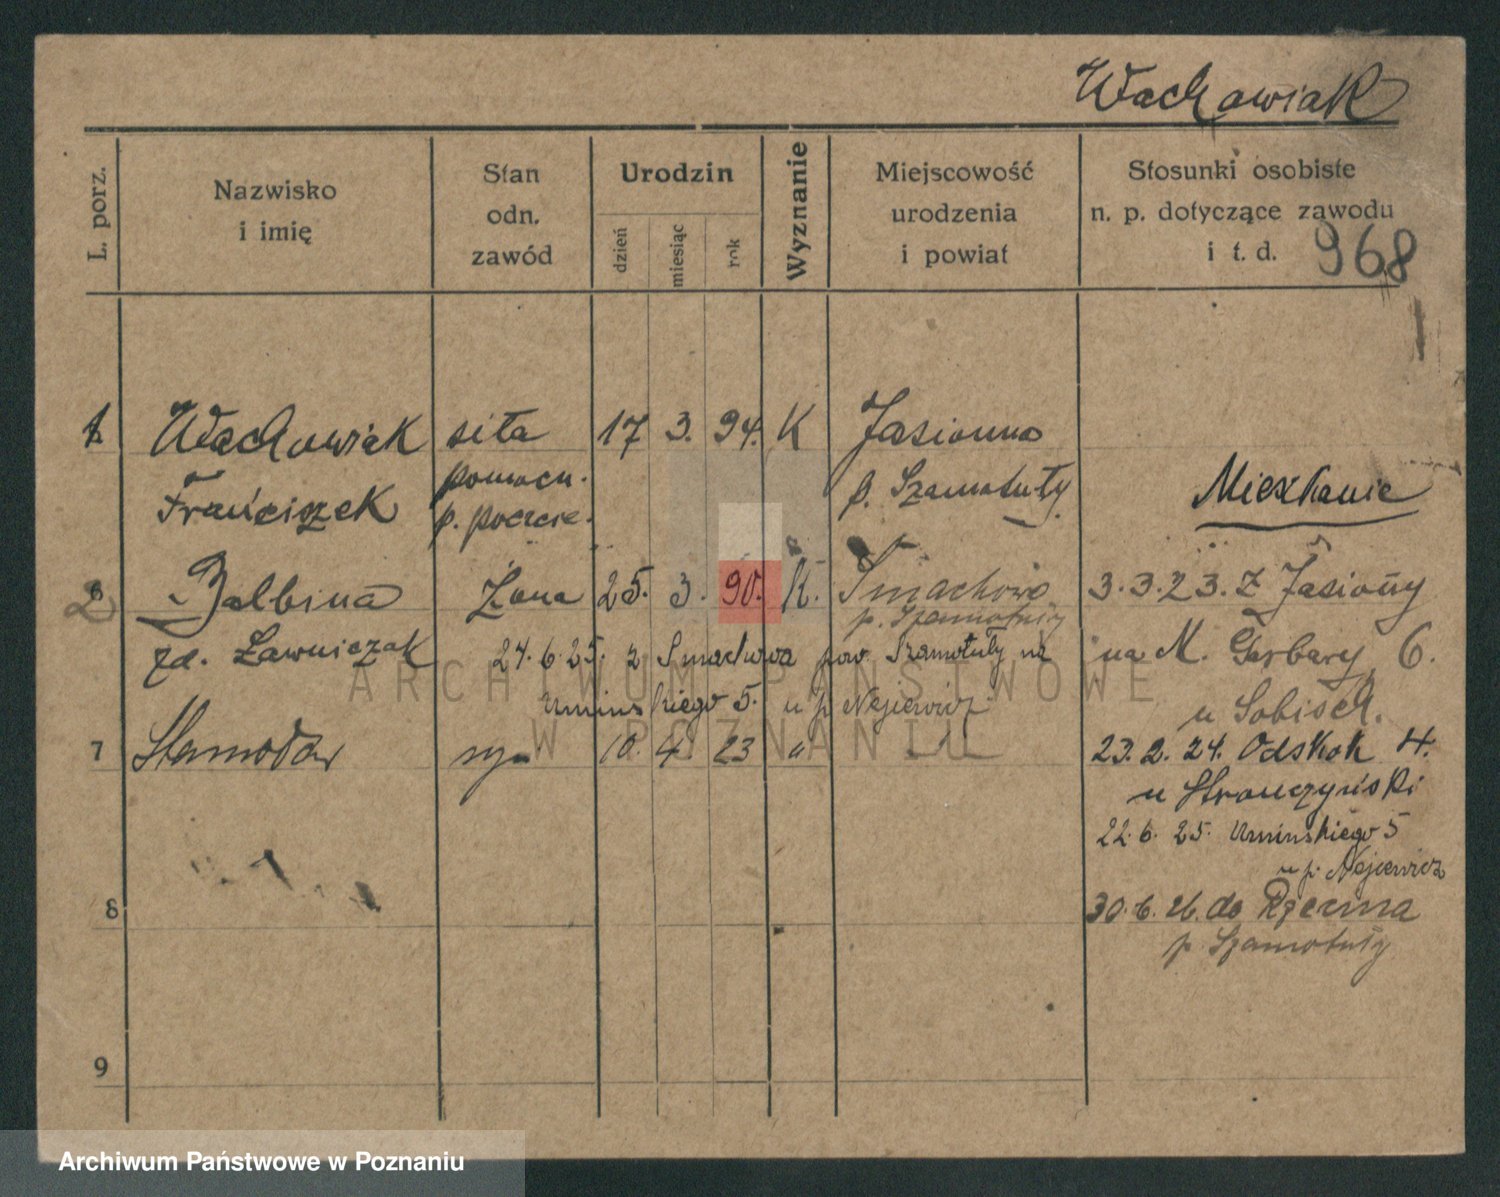 Wachowiak
L. porz.
Nazwisko
i imię
Stan
odn.
zawód
Urodzin
dzień
miesiąc
rok
Wyznanie
Miejscowość
urodzenia
i powiat
Stosunki osobiste
n. p. dotyczące zawodu
i t. d.
968
1 Wachowiak siła 17 3. 94. K Jasionna
Franciszek pomocn. p. Szamotuły
p. poczcie.
Mieszkanie
2 Balbina Żona 25. 3. 90. K. Smachowo
p. Szamotuły
zd. Ławniczak
24.6.25. z Smachowa pow. Szamotuły na
Umińskiego 5. u p. Nejewicz
7 10. 4. 23 "
3.3.23. z Jasionny
na M. Garbary 6.
u Sobisch.
23.2.24. Odskok 4.
u Stronczyński
22.6.25. Umińskiego 5
u p. Nejewicz
30.6.26. do
p. Szamotuły
8
9
ARCHIWUM PAŃSTWOWE
W POZNANIU
Archiwum Państwowe w Poznaniu